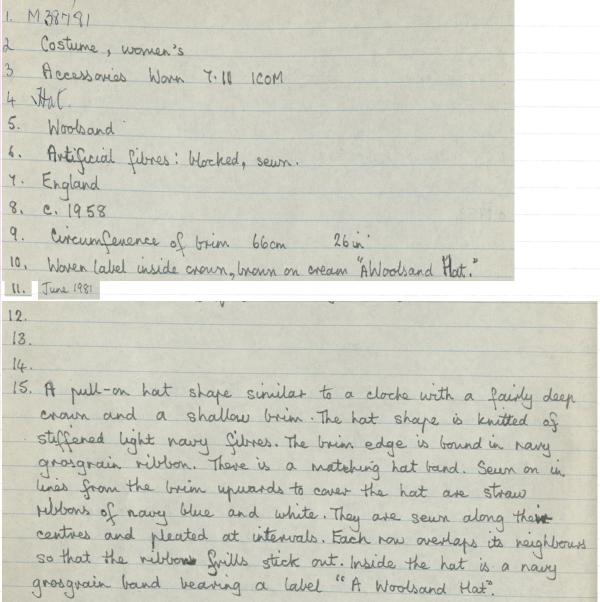 1. M38791
2 Costume, women's
3 Accessories Worn 7.11 ICOM
4 Hat.
5. Woolsand
6. Artificial fibres: blocked, sewn.
7. England
8. c. 1958
9. Circumference of brim 66cm 26in
10. Woven label inside crown, brown on cream "A Woolsand Hat."
11. June 1981
12.
13.
14.
15. A pull-on hat shape similar to a cloche with a fairly deep
crown and a shallow brim. The hat shape is knitted of
stiffened light navy fibres. The brim edge is bound in navy
grosgrain ribbon. There is a matching hat band. Sewn on in
lines from the brim upwards to cover the hat are straw
ribbons of navy blue and white. They are sewn along their
centres and pleated at intervals. Each row overlaps its neighbours
so that the ribbon frills stick out. Inside the hat is a navy
grosgrain band bearing a label "A Woolsand Hat".